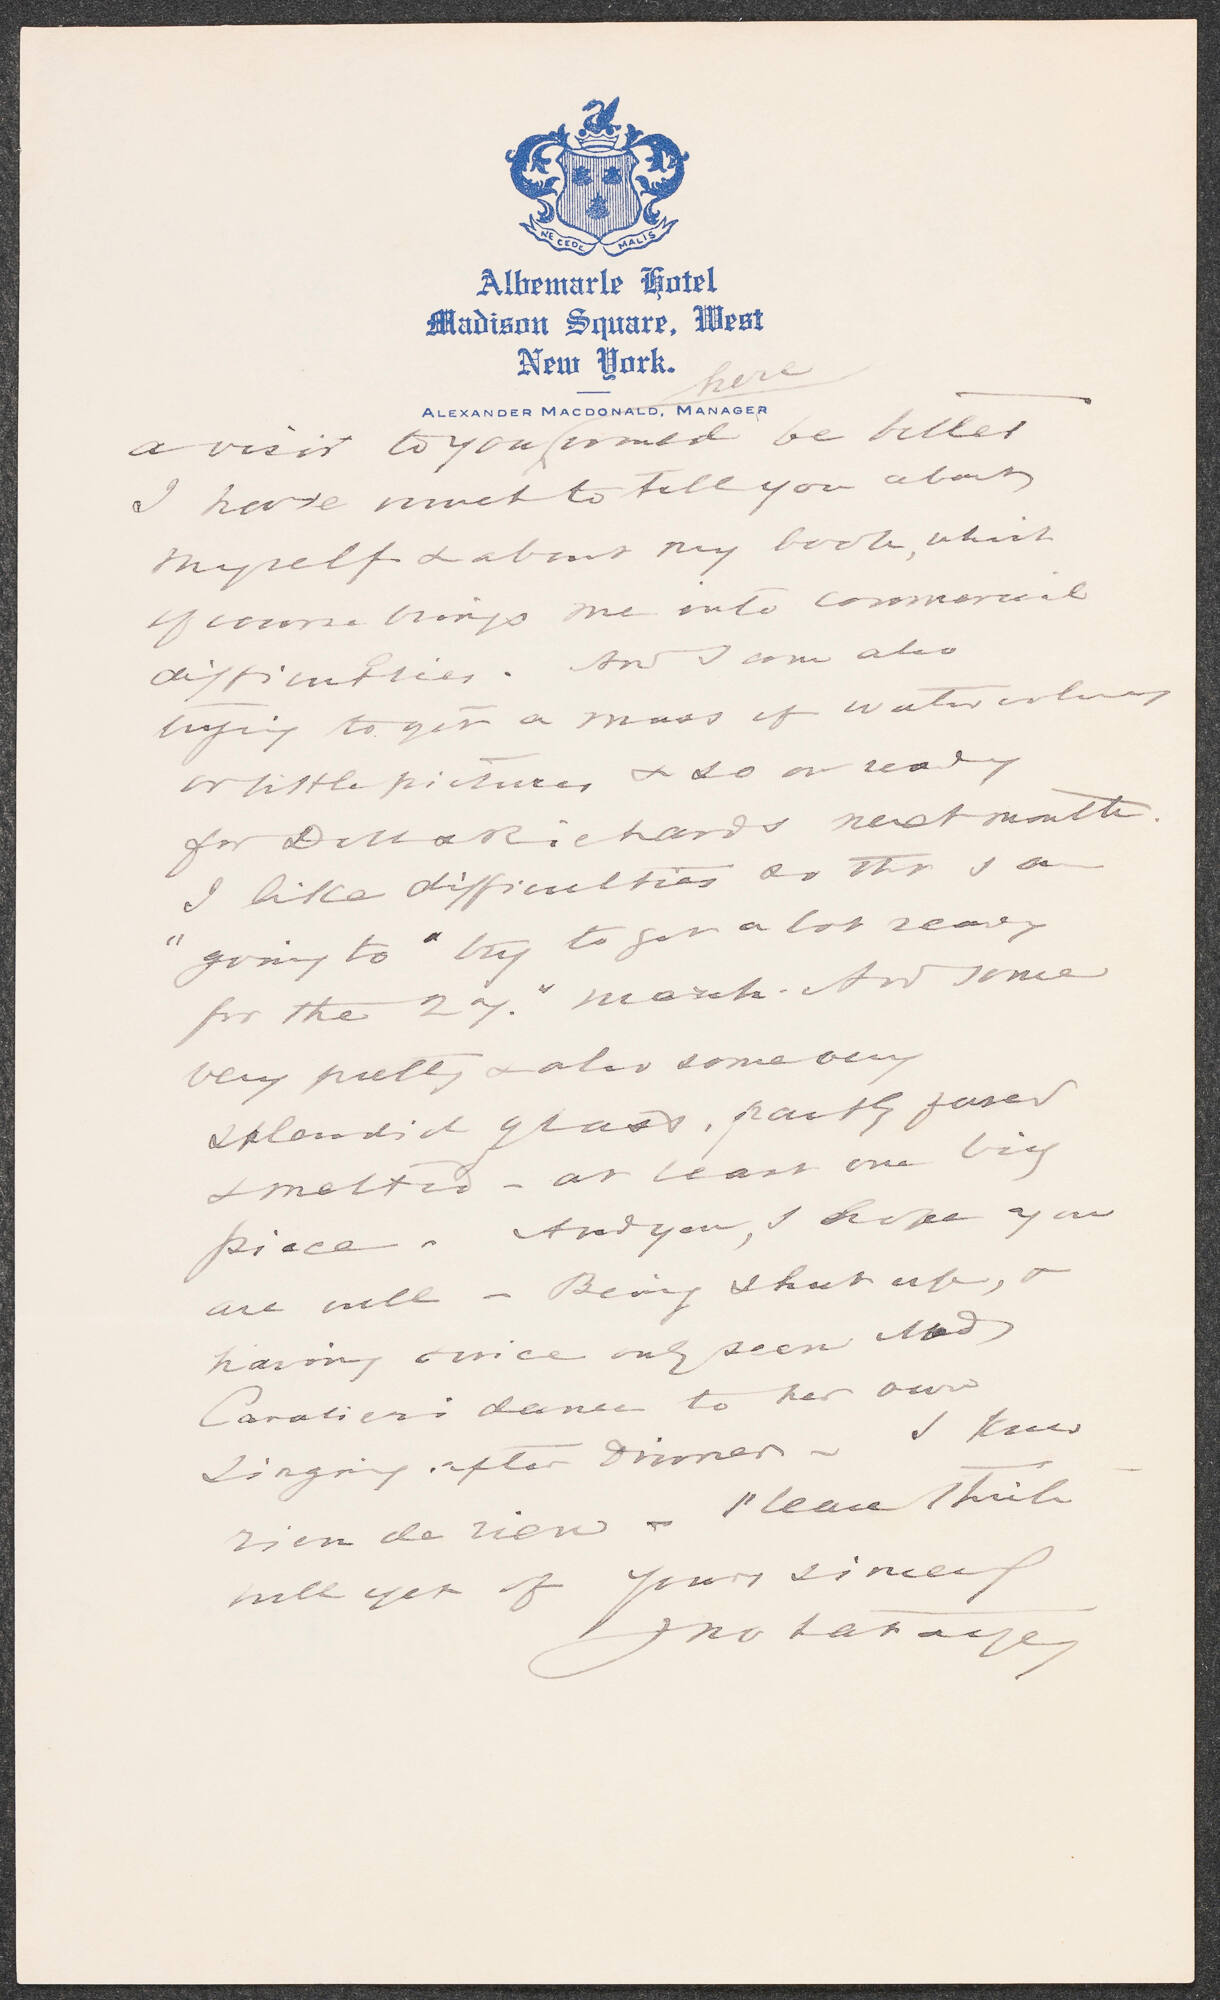 NE CEDE MALIS
Albemarle Hotel
Madison Square, West
New York.
ALEXANDER MACDONALD, MANAGER
here
a visit to you would be better
I have much to tell you about
myself & about my book, which
of course brings me into commercial
difficulties. And I am also
trying to get a mass of watercolours
or little pictures & so on ready
for Doll & Richards next month.
I like difficulties so that I am
"going to" try to get a lot ready
for the 27." March. And some
very pretty & also some very
splendid glass, partly fused
& melted – at least one big
piece. And you, I hope you
are well – Being shut up, &
having twice only seen Mad
Cavalieri dance to her own
singing after dinner – I know
rien de rien – Please think
well yet of Yours sincerely
Jno La Farge